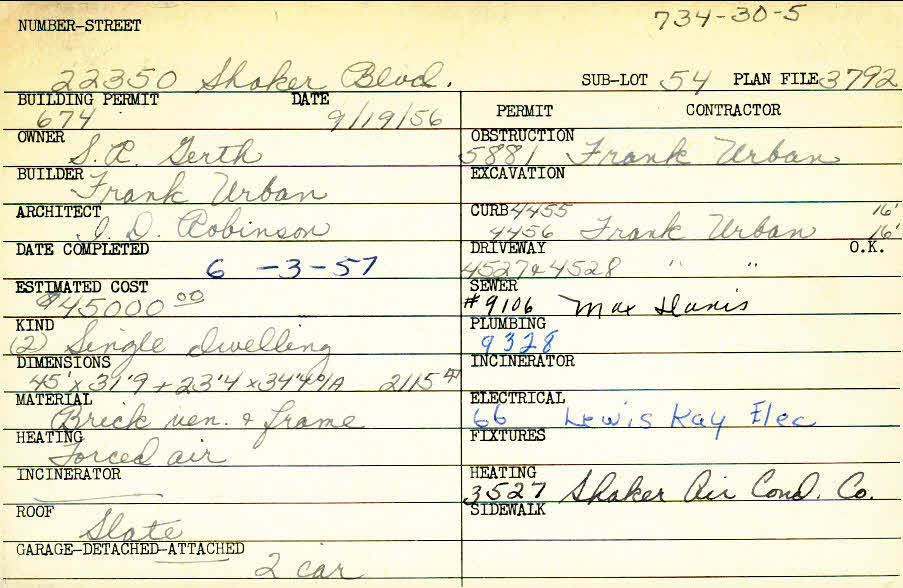 734-30-5
NUMBER-STREET
22350 Shaker Blvd. SUB-LOT 54 PLAN FILE 3792
BUILDING PERMIT DATE
674 9/19/56
OWNER
S. R. Gerth
BUILDER
Frank Urban
ARCHITECT
I. D. Robinson
DATE COMPLETED
6 -3-57
ESTIMATED COST
$45000 00
KIND
(2) Single dwelling
DIMENSIONS
45' x 31'9 + 23'4 x 34'4 2115
MATERIAL
Brick ven. & frame
HEATING
Forced air
INCINERATOR
ROOF
Slate
GARAGE-DETACHED-ATTACHED
2 car
PERMIT CONTRACTOR
OBSTRUCTION
5881 Frank Urban
EXCAVATION
CURB 4455 16'
4456 Frank Urban 16'
DRIVEWAY O.K.
4527 & 4528 " "
SEWER
#9106 Max
PLUMBING
9328
INCINERATOR
ELECTRICAL
66 Lewis Kay Elec
FIXTURES
HEATING
3527 Shaker Air Cond. Co.
SIDEWALK